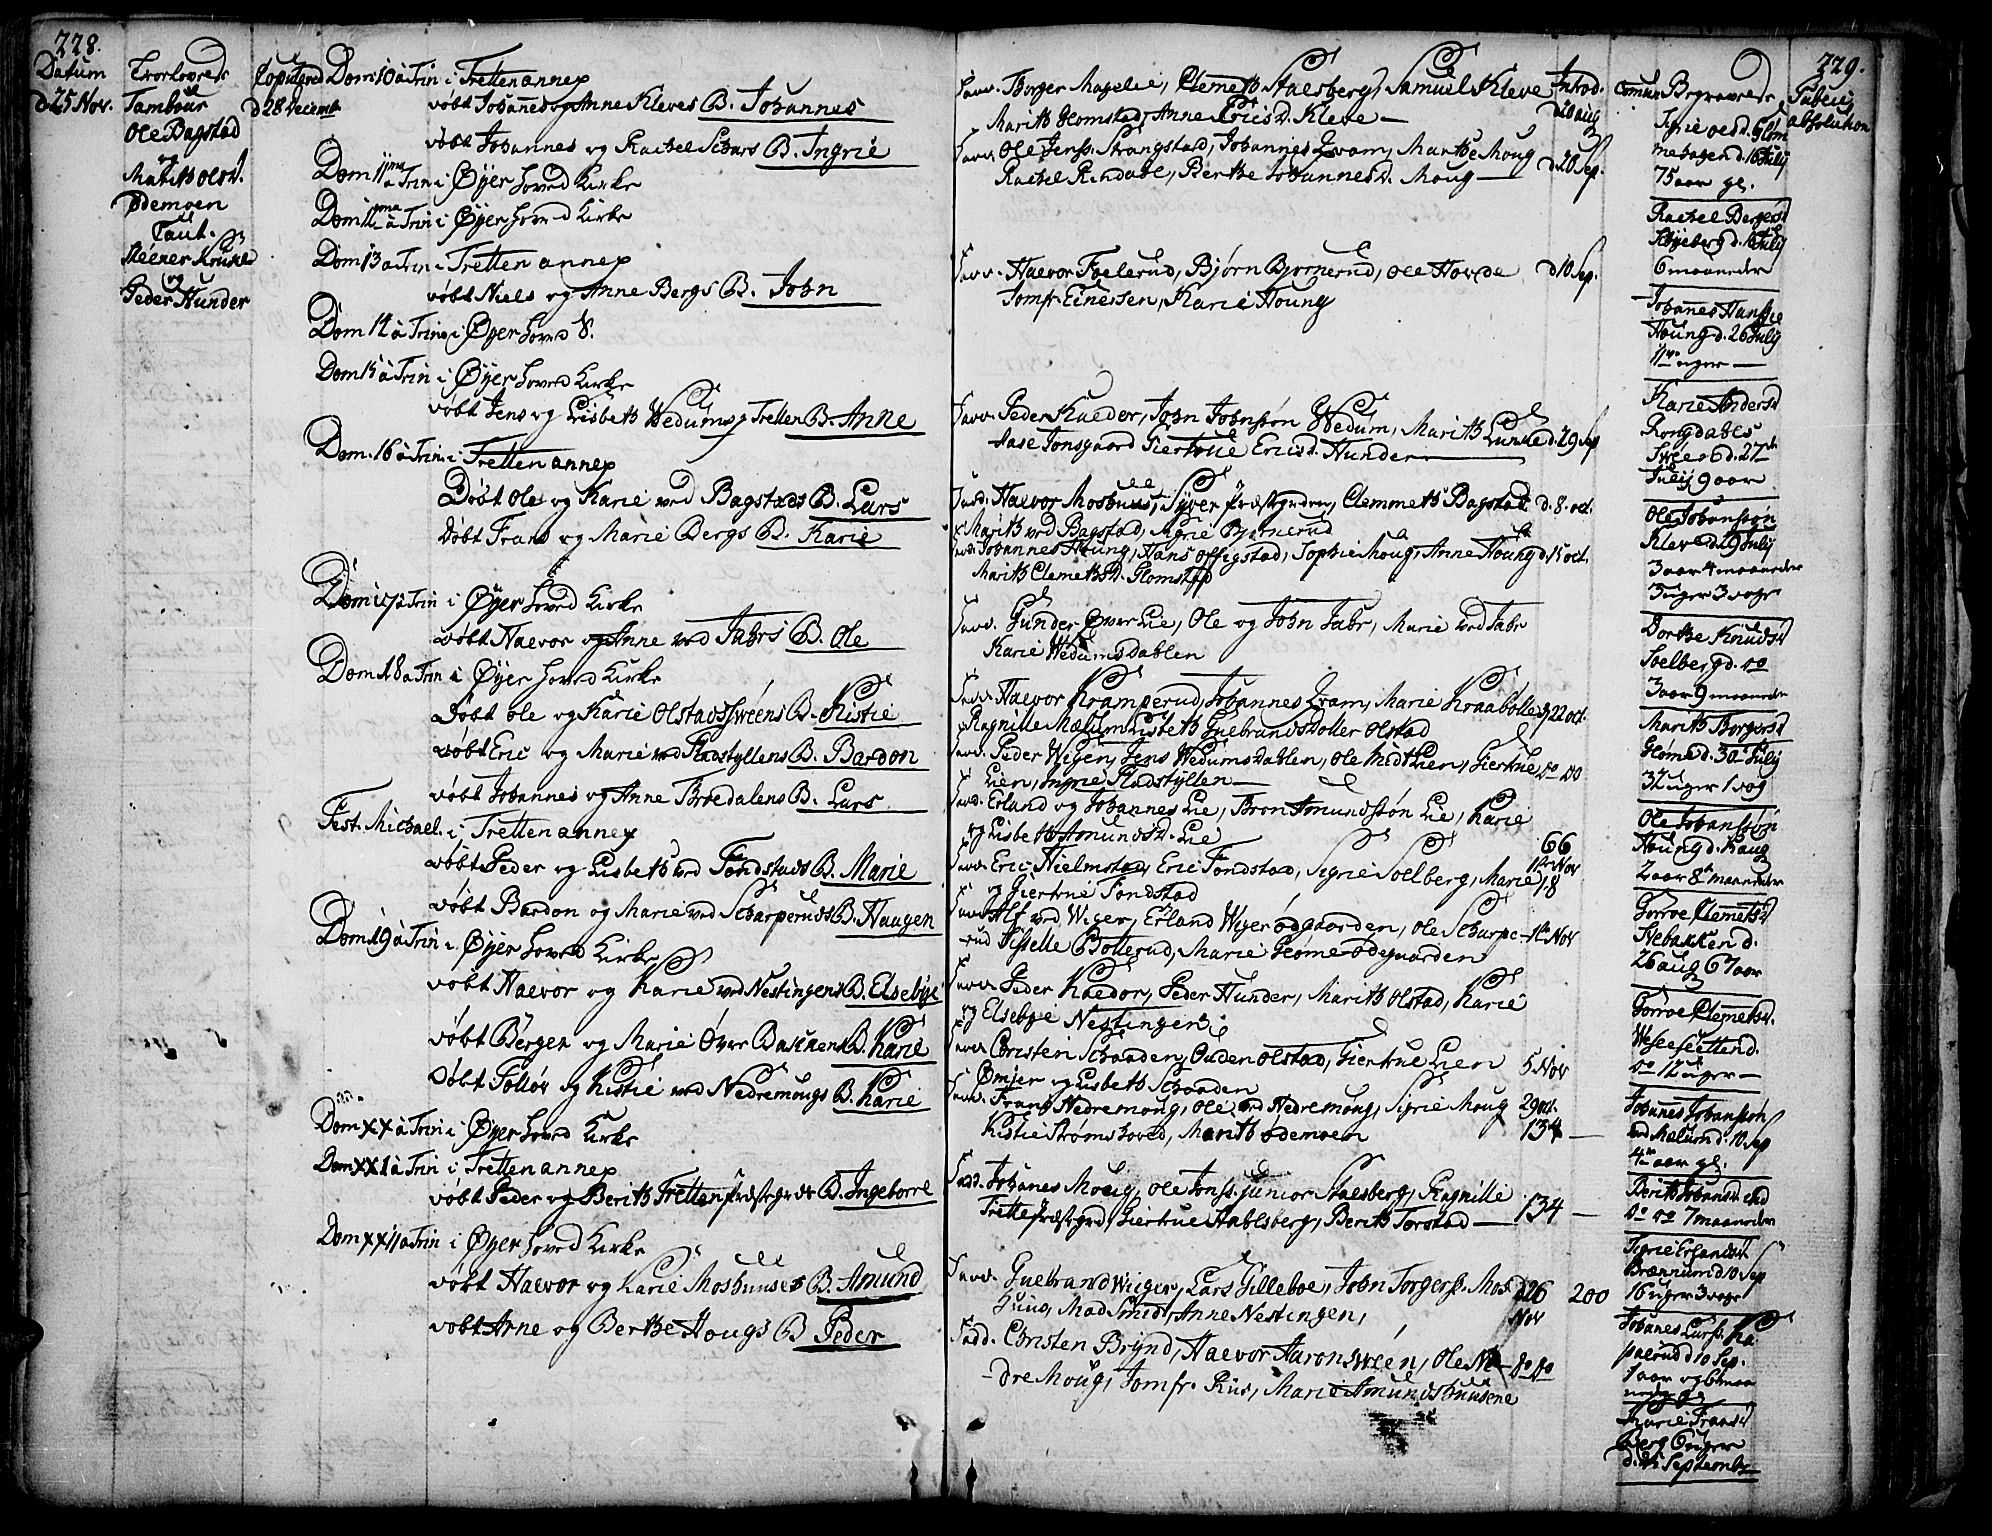 228.
Datum
d 25 Nov.
Trorlovede
Tambour
Ole Bagstad
og
Marith Olsd.
Ødemoen
Caut.
og
Peder Hunder
Copulered
d 28 Decemb
Dom 10 à Trin i Tretten annex
døbt Johannes og Anne Kleves B. Johannes
døbt Johannes og Rachel Schars B. Ingrie
Dom 11 ma à Trin i Øyer Hoved Kirke
Dom 12 ma à Trin i Øyer Hoved Kirke
Dom 13 a Trin i Tretten annex
døbt Niels og Anne Bergs B. John
Dom 14 à Trin i Øyer Hoved K.
Dom 15 à Trin i Øyer Hoved Kirke
døbt Jens og Lisbeth Wedums Tretten B. Anne
Dom. 16 à Trin. i Tretten annex
Døbt Ole og Karie ved Bagstads B. Lars
Døbt Frans og Marie Bergs B. Karie
Dom 17 à Trin i Øyer Hoved Kirke
døbt Haevor og Anne ved Jahrs B. Ole
Dom. 18 a Trin i Øyer Hoved Kirke
Døbt Ole og Karie Olstadsveens B. Kistie
døbt Eric og Marie ved Stadstyllens B. Bardon
døbt Johannes og Anne Broedalens B. Lars
Fest. Michael. i Tretten annex
døbt Peder og Lisbeth ved Fonstads B. Marie
døbt Bardon og Marie ved Scharperuds B. Haagen
Dom. 19 à Trin i Øyer Hoved Kirke
døbt Haevor og Karie ved Nestingens B. Elsebye
døbt Børger og Marie Over Bakkens B. Karie
døbt Follov og Kistie ved Nedremougs B. Karie
Dom XX à Trin i Øyer Hoved Kirke
Dom XXI à Trin i Tretten annex
døbt Peder og Berith Tretten Præstgrds B. Ingeborre
Dom XXII a Trin i Øyer Hoved Kirke
døbt Haevor og Karie Moshuuses B. Amund
døbt Arne og Berthe Hougs B Peder
Favd. Borger Magelie, Clemeth Stalsberg, Samuel Kleve
Marith Glomstad, Anne Ericsd. Kleve —
Favd. Ole Jenss. Strangstad, Johannes Qvam, Marthe Moug
Rachel Rindahl, Berthe Johannesd. Moug
Favd. Haevor Foelerud, Bjørn Bjørnerud, Ole Hovde
Jomfr. Einersen, Karie Houng
Favd. Peder Kaedor, John Johnssøn Wedum, Marith Lunke
Aase Jonsgaard Giertrue Ericsd. Hunder
Favd. Haevor Moshuus, Syver Præstgrden, Clemmeth Bagstad
Marith ved Bagstad, Ingrie Bjørnerud
Favd. Johannes Houng, Hans Offigstad, Sophie Moug, Anne Houng
Marith Clemethsd. Glomstad
Favd. Gunder Øverlie, Ole og John Jahr, Marie ved Jahr
Karie Wedumsdahlen
Favd. Haevor Kramperud, Johannes Qvam, Marie Kraabølle
Ragnille Mælum Lisbeth Guebrandsdotter Olstad
Favd. Peder Wigen, Jens Wedumsdahlen, Ole Midtlien, Giertrue
Lien, Ingrie Stadstyllen
Favd. Erland og Johannes Lie, Bron Amundssøn Lie, Karie
og Lisbeth Amundsd. Lie
Favd. Eric Hielmstad, Eric Fonstad, Sigrie Soelberg, Marie
og Giertrue Fonstad
Favd. Alf ved Wigen, Erland Wigerødegaarden, Ole Scharpe-
rud Sisselle Botterud, Marie Glømmeødegaarden
Favd. Peder Kaedor, Peder Hunder, Marith Olstad, Karie
og Elsebye Nestingen
Favd. Christen Schaaden, Ouden Olstad, Giertrue Lien
Ømjer og Lisbeth Schaaden
Favd. Frans Nedremoug, Ole ved Nedremoug, Sigrie Moug
Kistie Strømshoved, Marith Ødemoen
Fadd. Johanes Moug, Ole Jonss. junior Stalsberg, Ragnille
Trette Præstgrd, Giertrue Stahlsberg, Berith Torstad
Favd. Guebrand Wiger, Lars Gilleboe, John Torgerss. Mos
huus, Mad Smidt, Anne Nestingen,
Fadd. Christen Brynd, Haevor Aaronsveen, Ole Ne-
dre Moug, Jomfr. Riis, Marie Amundshuusene
Introd.
d 20 aug
d 20 Sep.
d 10 Sep.
d. 29 Sep
d. 8. oct.
d. 15 oct.
d 22 oct.
do do
66
1ste Nov
18
1ste Nov
5 Nov
29 oct.
134
134
d 26
Nov
do do
200
Begravede
Sigrie Olesd. Glom
mehagen d. 16 July
75 aar gl.
Rachel Bergersd
Skyeberg d. 16 July
6 maaneder
Johannes Hanssøn
Houng d. 26 July
11 uger —
Karie Andersd
Rongdahls
Sveen d. 27de
July 9 aar
Ole Johanssøn
Kleve d 29 July
3 aar 4 maaneder
3 uger 3 dage
Dorthe Knudsd
Soelberg d. do
3 aar 9 maaneder
Marith Borgersd
Glome d. 30 July
32 uger 1 dag
Ole Johanssøn
Houng d. 15 aug
2 aar 8 maaneder
Gorroe Clemetsd
Stebakken d.
26 aug 67 aar
Gorroe Clemetsd.
do 12 uger —
Johanes Johanssøn
ved Mælum d. 10 Sep
4 aar gl.
Berith Johansd. ibid
do do 7 maaneder
Sigrie Erlandsd
Brænnum d 10 Sep
16 uger 3 dage
Johanes Larss. Ka
paerud d 10 Sep.
1 aar og 6 maa
neder
Marie Fransd
Berg 6 uger
d. 24 Septemb
229.
Publiq
absolution